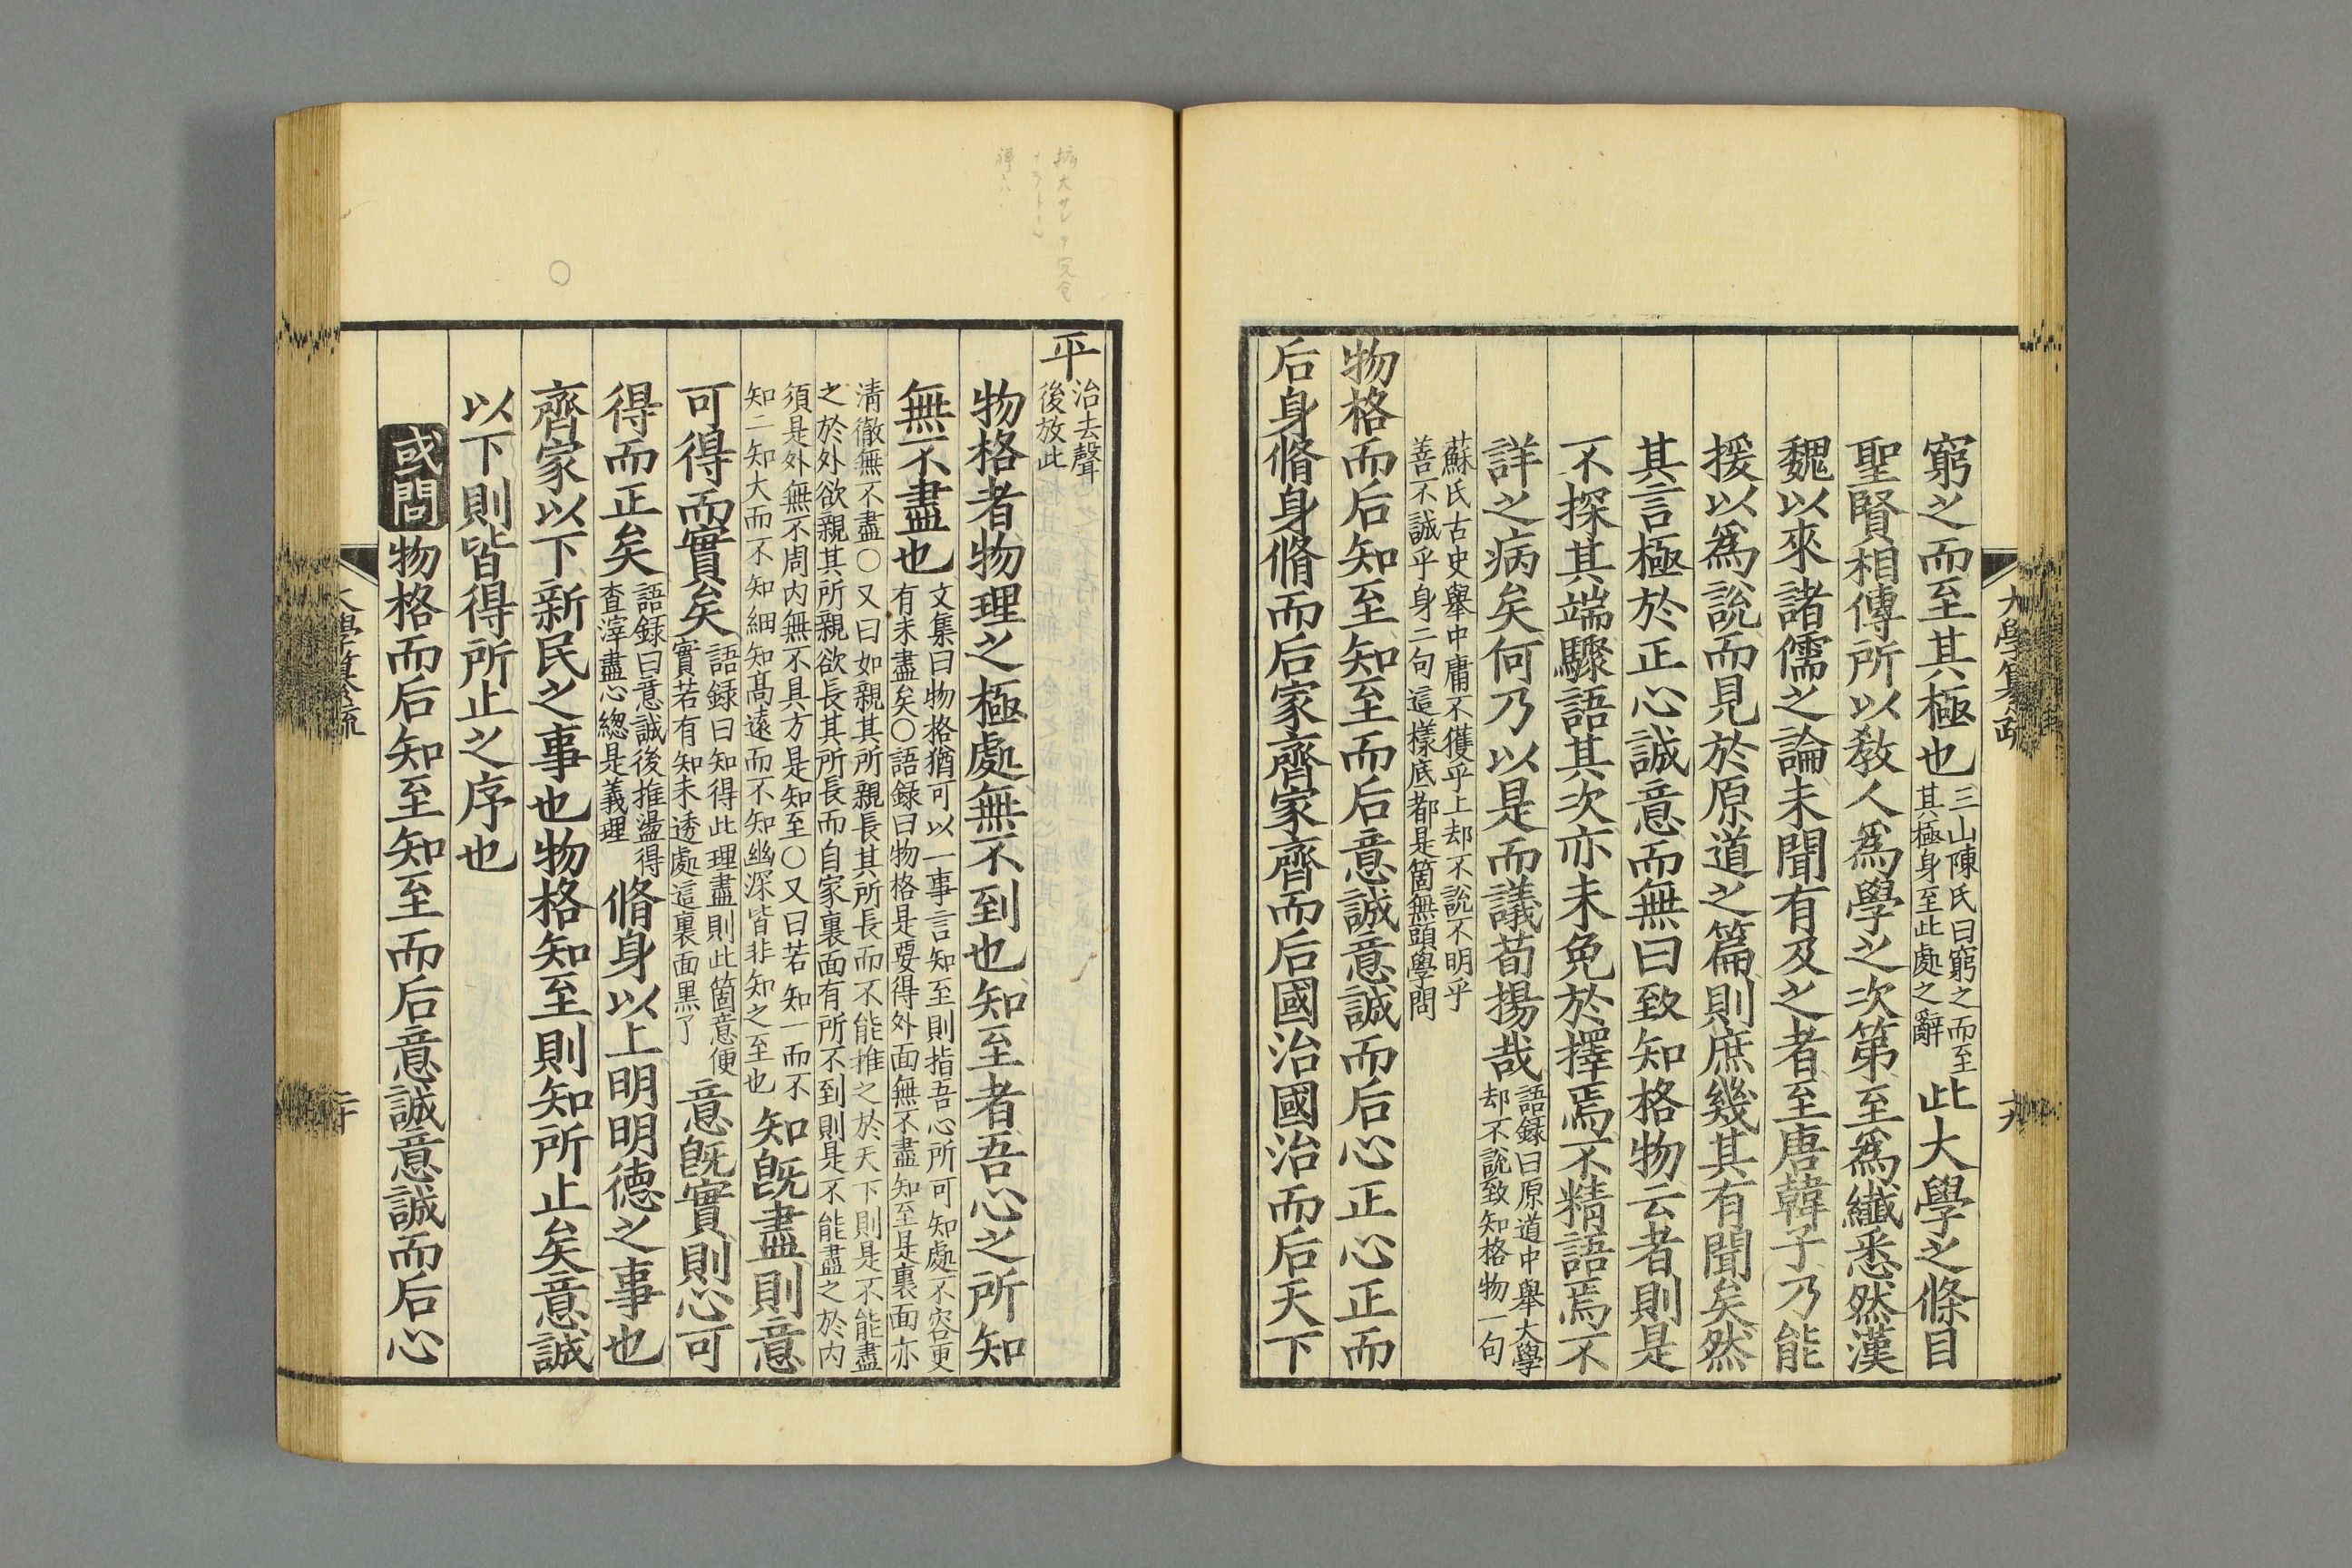 窮之而至其極也三山陳氏曰窮之而至其極身至此處之辭此大學之條目
聖賢相傳所以教人爲學之次第至爲纖悉然漢
魏以來諸儒之論未聞有及之者至唐韓子乃能
援以爲說而見於原道之篇則庶幾其有聞矣然
其言極於正心誠意而無曰致知格物云者則是
不探其端驟語其次亦未免於擇焉不精語焉不
詳之病矣何乃以是而議荀揚哉語録曰原道中舉大學却不說致知格物一句
蘇氏古史舉中庸不獲乎上却不說不明乎
善不誠乎身二句這樣底都是箇無頭學問
物格而后知至知至而后意誠意誠而后心正心正而
后身脩身脩而后家齊家齊而后國治國治而后天下
大學纂疏
十九
平治去聲後放此
物格者物理之極處無不到也知至者吾心之所知
無不盡也文集曰物格猶可以一事言知至則指吾心所可知處不容更有未盡矣○語録曰物格是要得外面無不盡知至是裏面亦
清徹無不盡○又曰如親其所親長其所長而不能推之於天下則是不能盡
之於外欲親其所親欲長其所長而自家裏面有所不到則是不能盡之於内
須是外無不周内無不具方是知至○又曰若知一而不知二知大而不知細知高遠而不知幽深皆非知之至也知旣盡則意
可得而實矣語録曰知得此理盡則此箇意便實若有知未透處這裏面黑了意旣實則心可
得而正矣語録曰意誠後推盪得査滓盡心緫是義理脩身以上明明德之事也
齊家以下新民之事也物格知至則知所止矣意誠
以下則皆得所止之序也
或問物格而后知至知至而后意誠意誠而后心
大學纂疏
二十